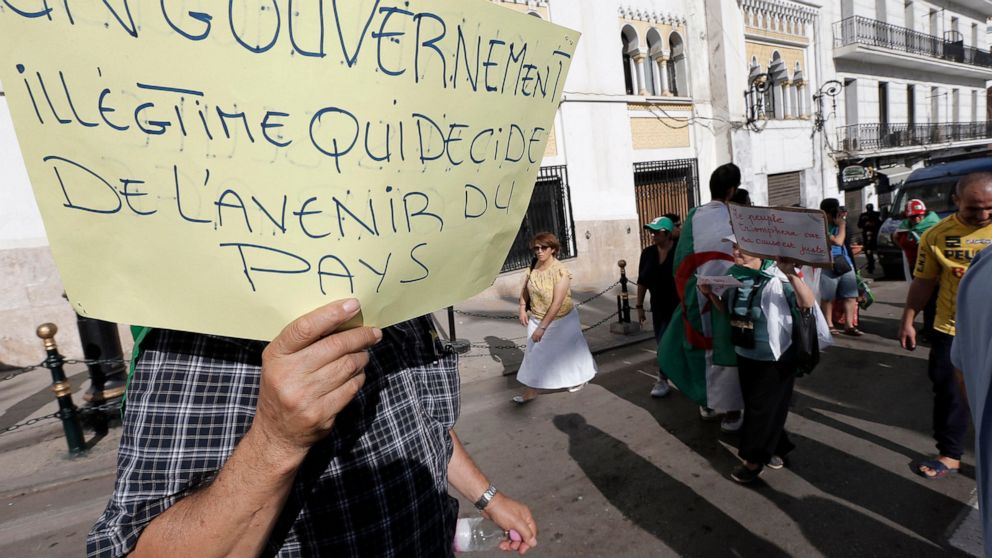 UN GOUVERNEMENT
ILLÉGTIME QUI DECIDE
DE L'AVENIR DU
PAYS
Le peuple
triomphera car
sa cause est juste